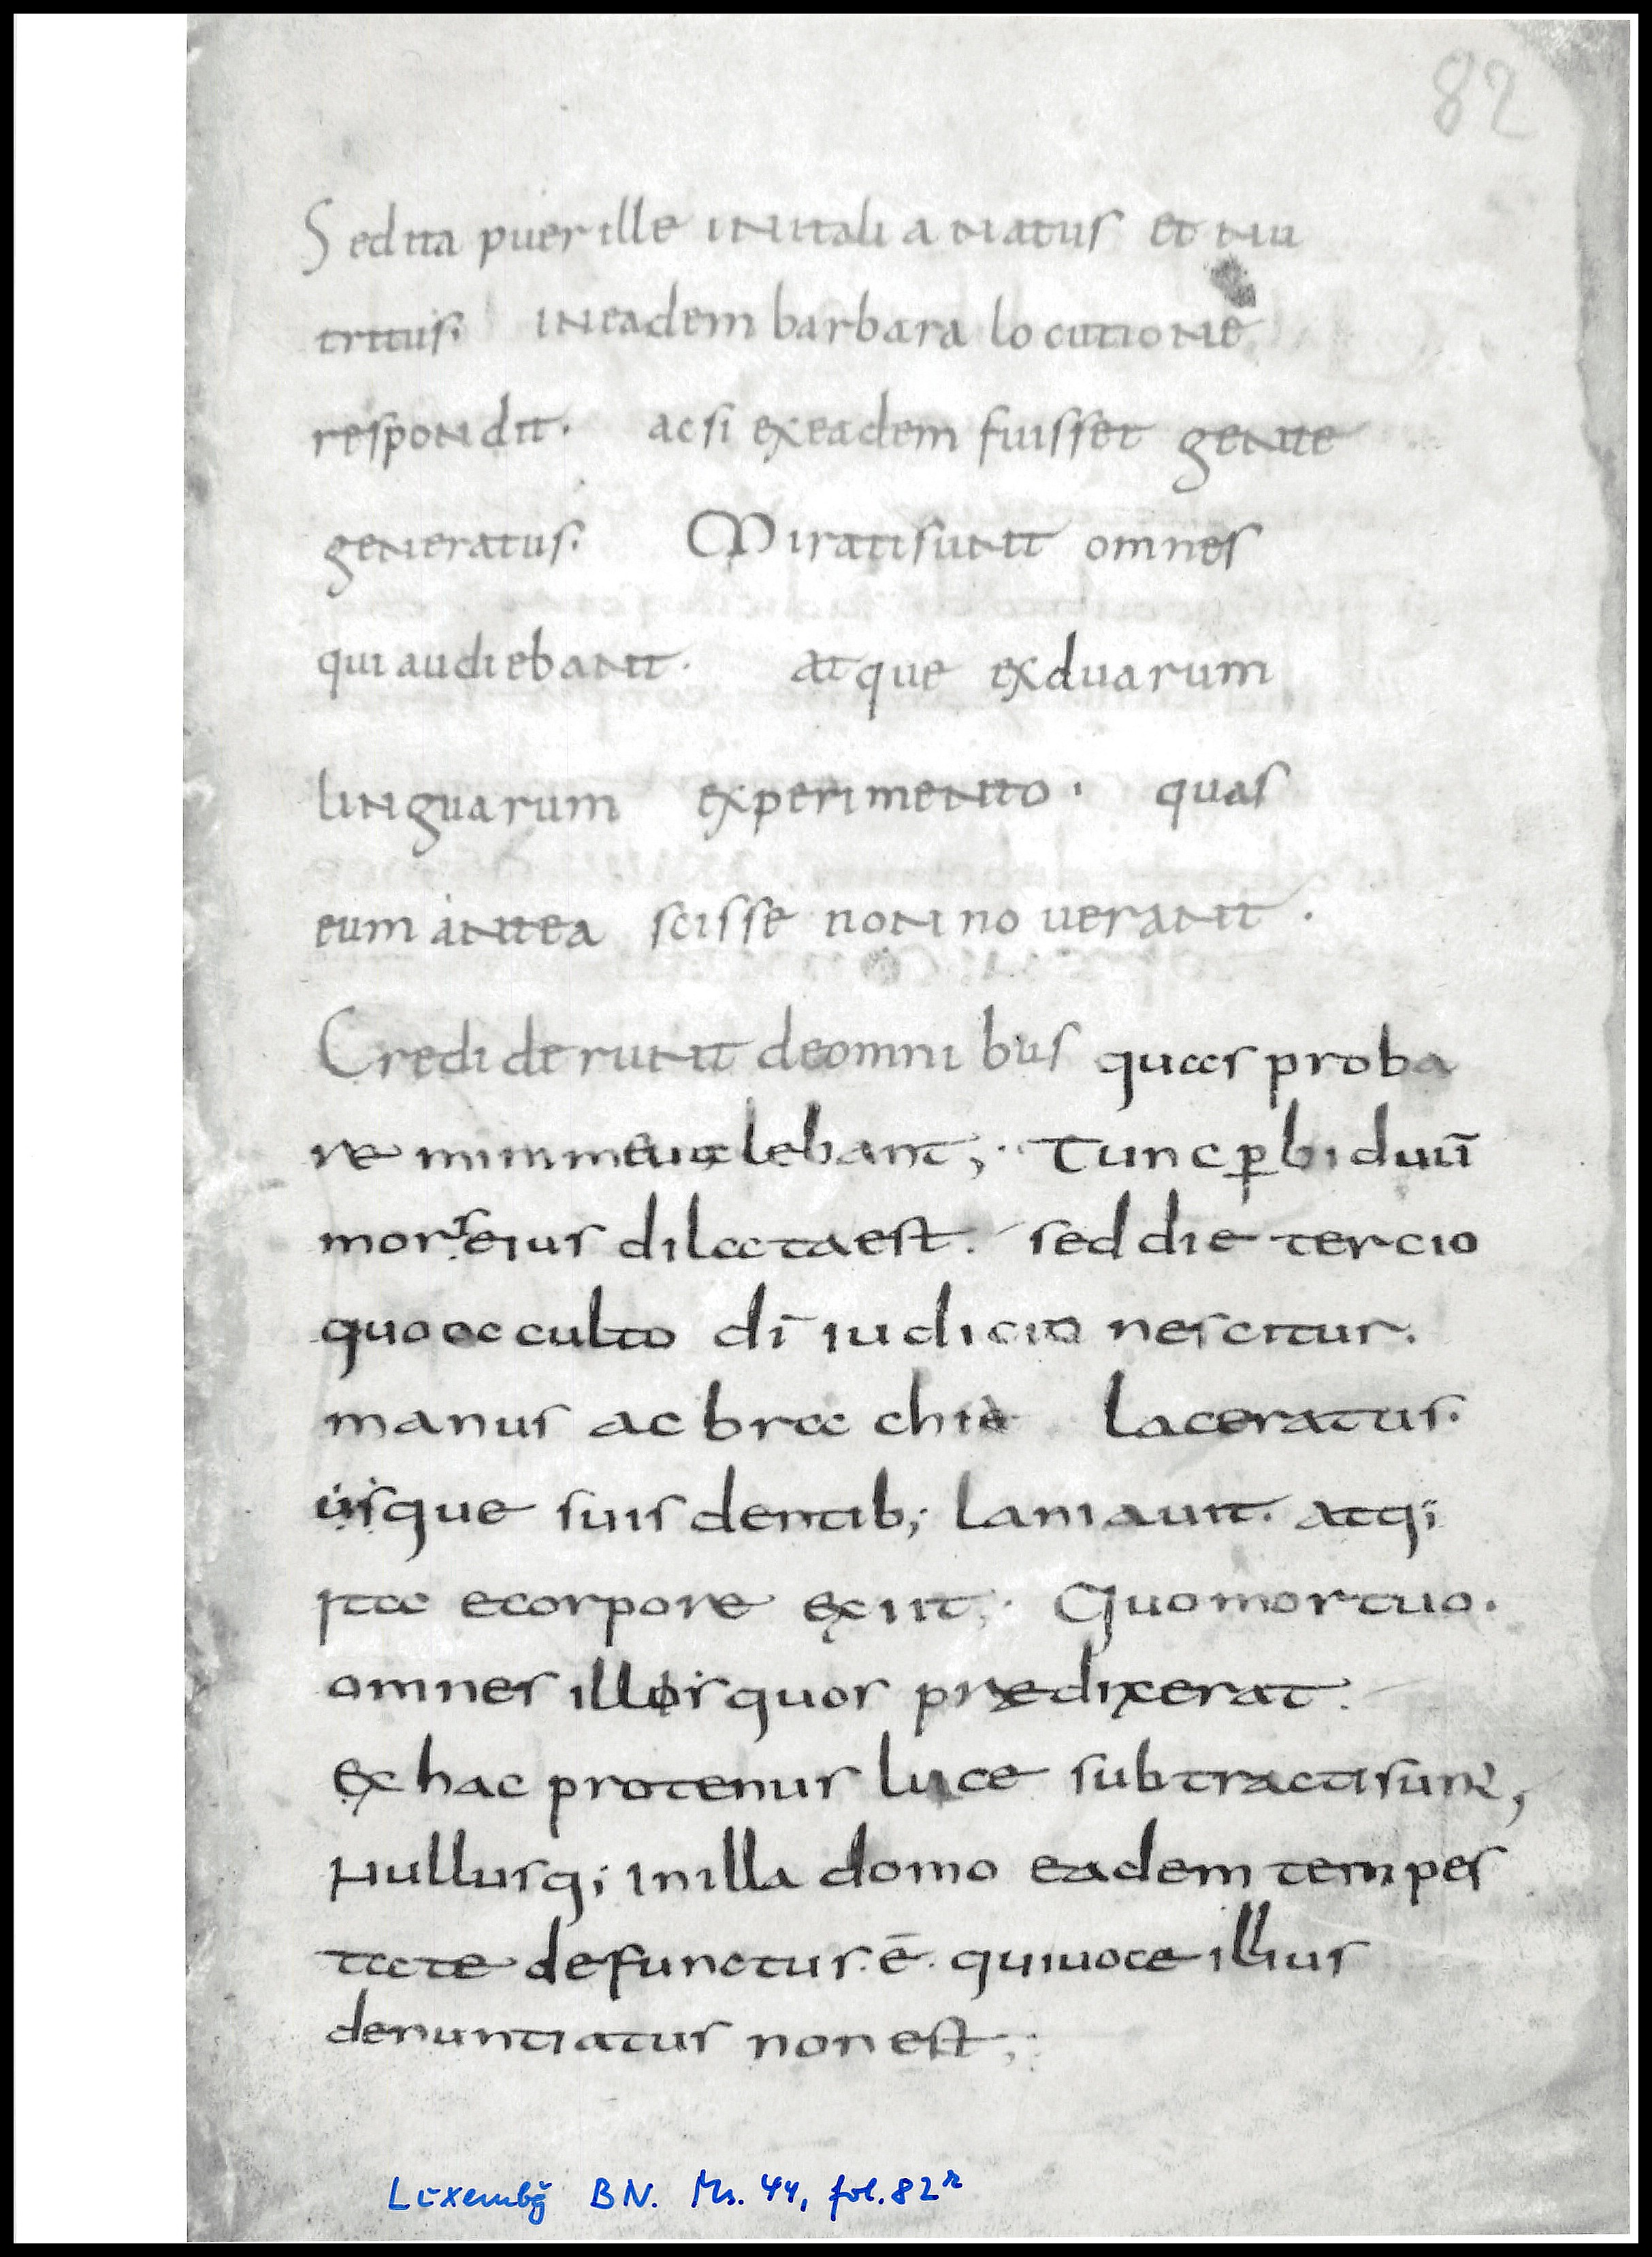 82
Sed ita puer ille in itali a natus et nu
tritus. in eadem barbara locutione
respondit. acsi ex eadem fuisset gente
generatus. Mirati sunt omnes
qui audiebant. atque ex duarum
linguarum experimento. quas
eum antea scisse non no uerant.
Crediderunt de omnibus quas proba
re minime ualebant;. Tunc ꝑ biduū
mors eius dilata est. sed die tercio
quo occulto dī iudicio nescitur.
manus ac brachia laceratus.
usque suis dentib; laniauit. atq;
ita e corpore exiit;. Quo mortuo.
omnes illos quos predixerat.
ex hac protenus luce subtracti sunt,
Nullusq; in illa domo eadem tempes
tate defunctus. ē. qui uoce illius
denuntiatus non est;
Luxembg BN. Ms. 44, fol. 82r